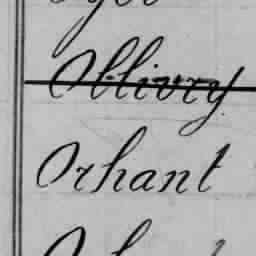 Ollivry
Orhant